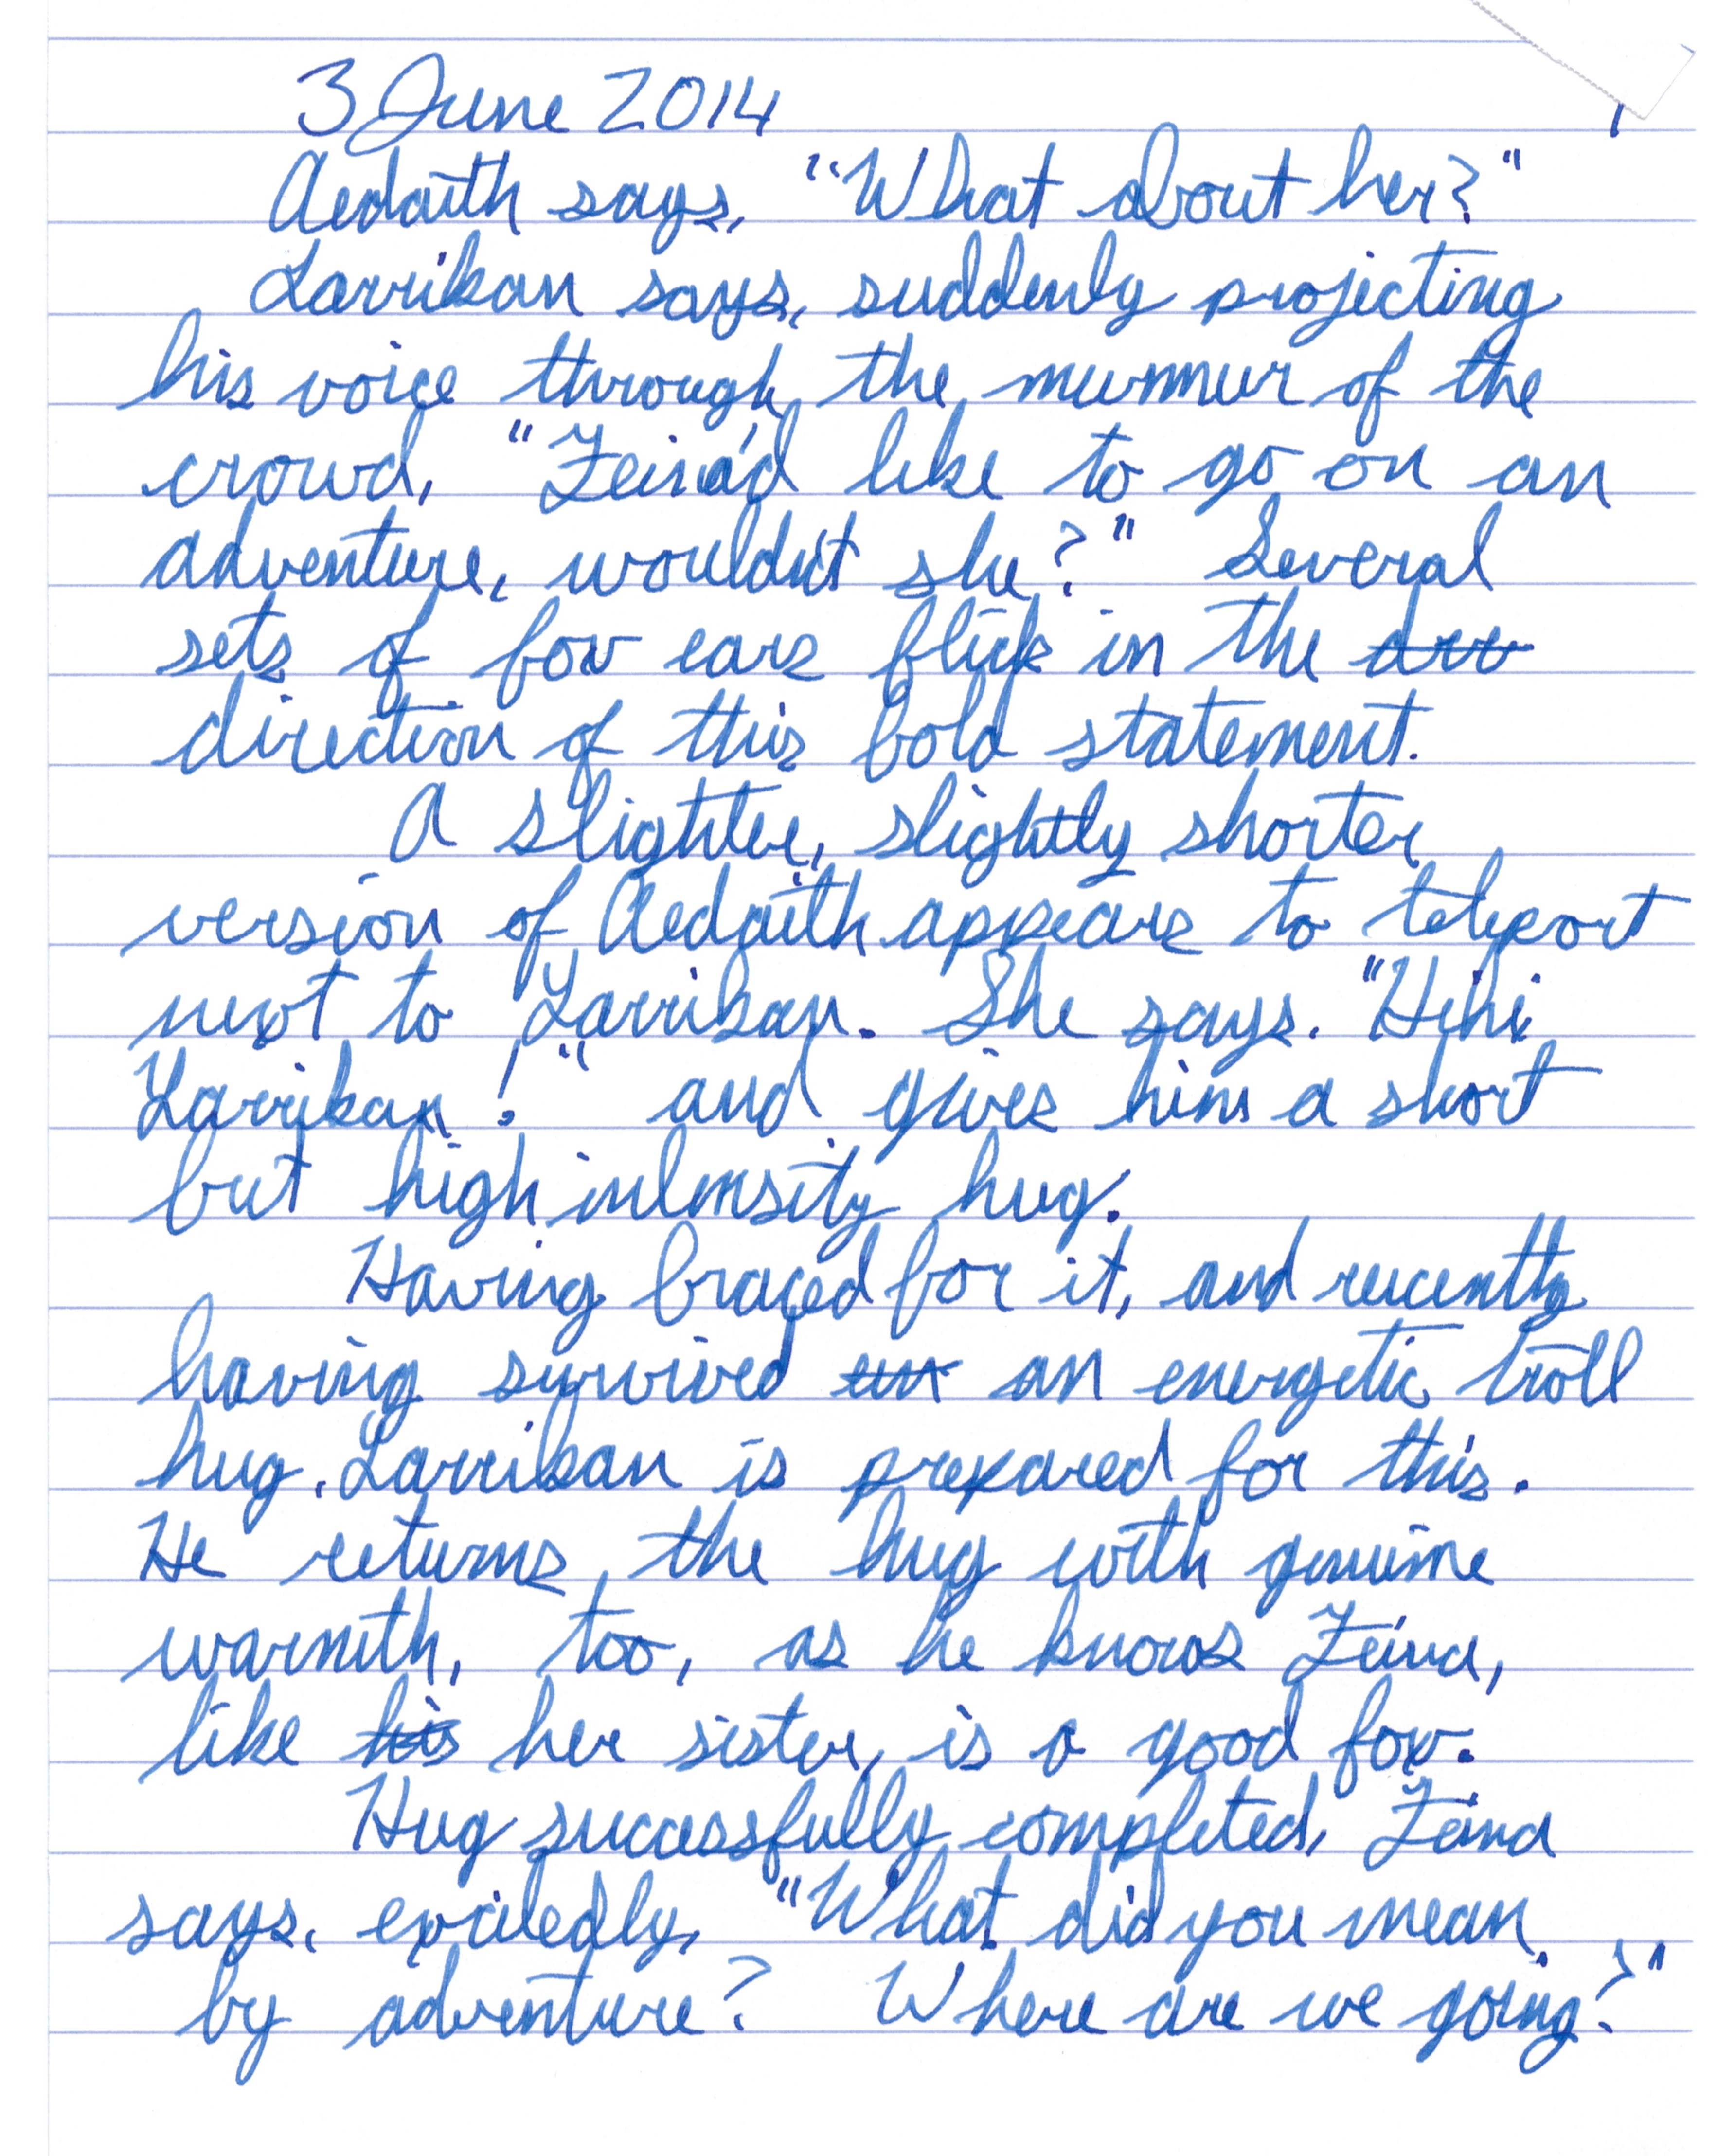 3 June 2014 1
Aedaith says, "What about her?"
Larrikan says, suddenly projecting
his voice through the murmur of the
crowd, "Zeina'd like to go on an
adventure, wouldn't she?" Several
sets of fox ears flick in the
direction of this bold statement.
A slighter, slightly shorter
version of Aedaith appears to teleport
next to Larrikan. She says, "Hihi
Larrikan!" and gives him a short
but high intensity hug.
Having braced for it, and recently
having survived an energetic troll
hug, Larrikan is prepared for this.
He returns the hug with genuine
warmth, too, as he knows Zeina,
like his her sister, is a good fox.
Hug successfully completed, Zeina
says, excitedly, "What did you mean
by adventure? Where are we going?"